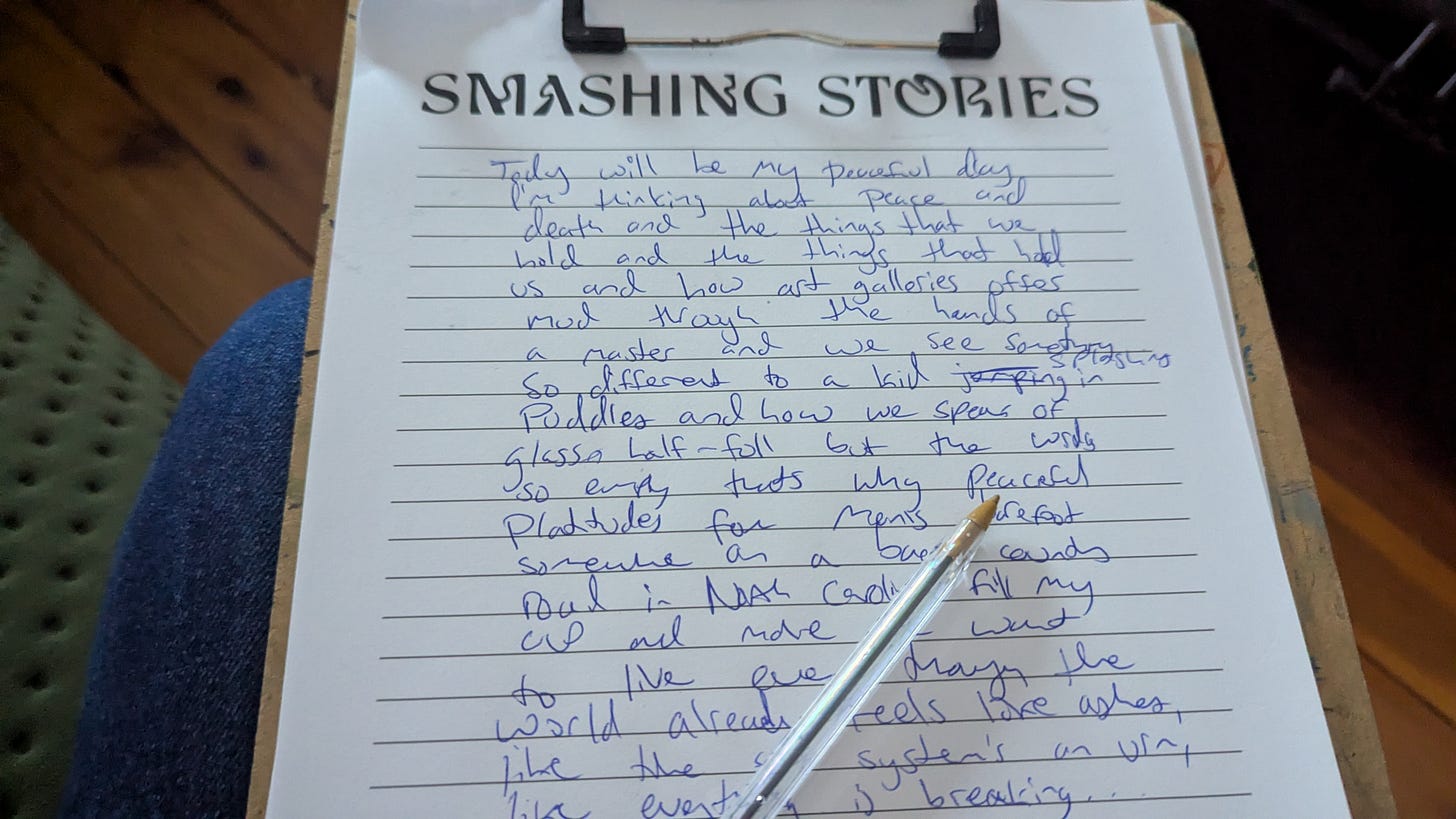 SMASHING STORIES
Today will be my peaceful day,
I'm thinking about peace and
death and the things that we
hold and the things that hold
us and how art galleries offer
mud through the hands of
a master and we see something
so different to a kid splashing in
Puddles and how we speak of
glasses half-full but the words
so empty thats why peaceful
Platitudes from
somewhere on a
road in North fill my
cup and more want
to live even though the
world already feels like ashes,
like the system's an urn,
like is breaking...